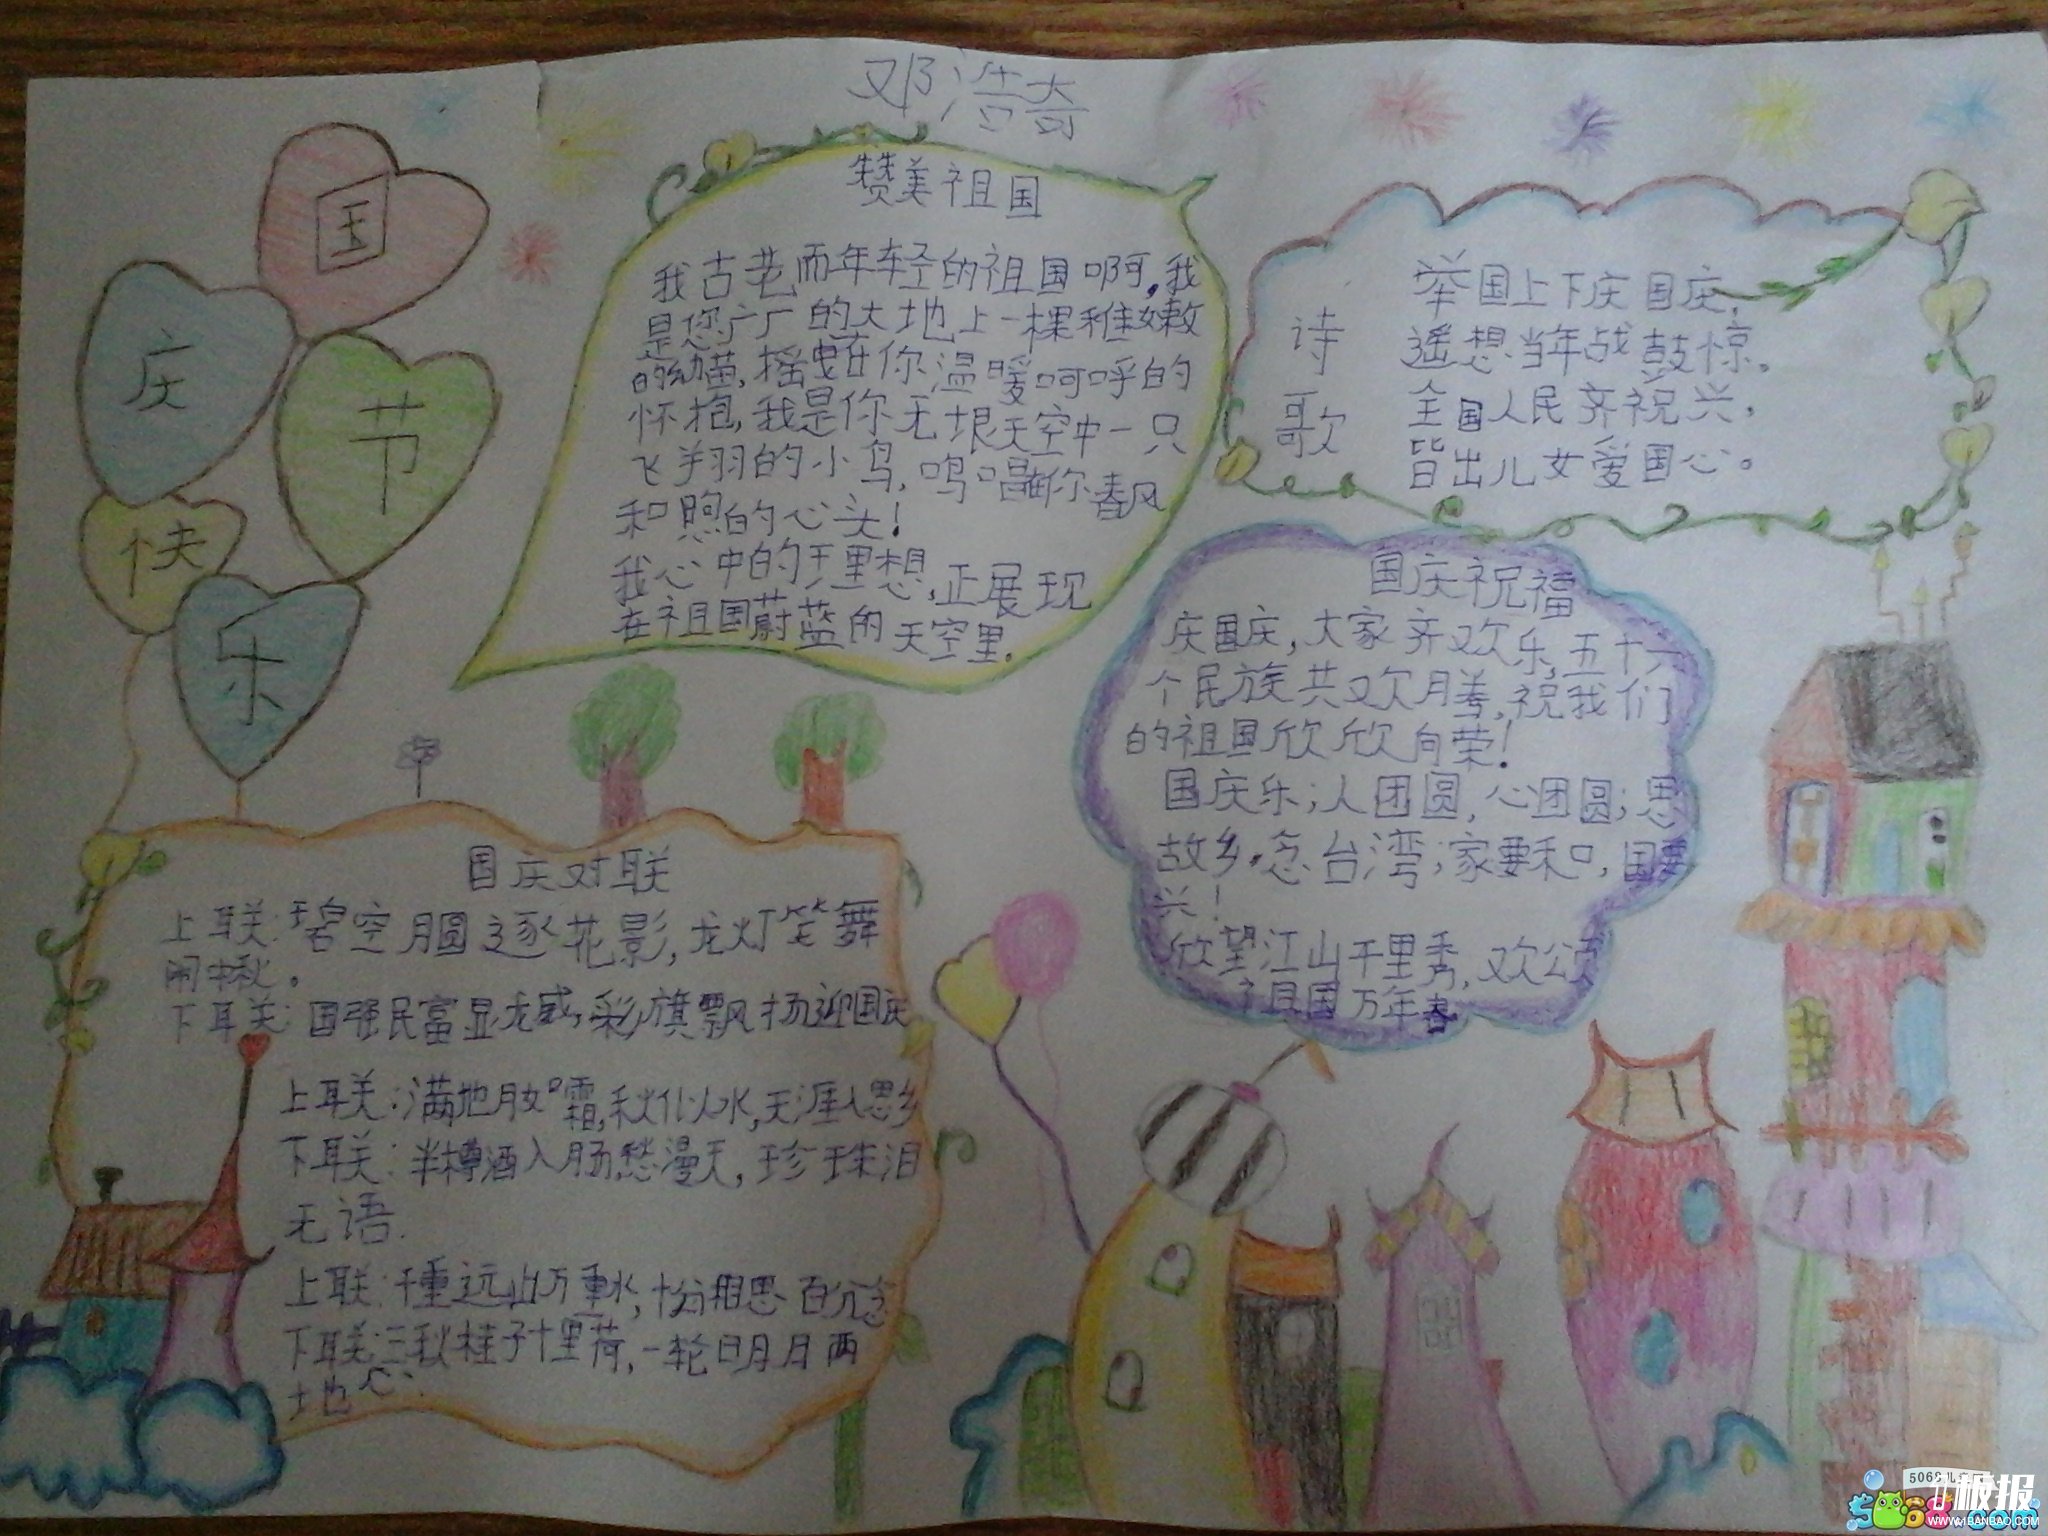 邓浩奇
国
庆
节
快
乐
赞美祖国
我古老而年轻的祖国啊，我
是您广厂的大地上一棵稚嫩
的幼苗，摇曳在你温暖呵呼的
怀抱，我是你无垠天空中一只
飞翔的小鸟，鸣唱在你春风
和煦的心头！
我心中的理想，正展现
在祖国蔚蓝的天空里。
诗歌
举国上下庆国庆，
遥想当年战鼓惊。
全国人民齐祝兴，
皆出儿女爱国心。
国庆祝福
庆国庆，大家齐欢乐，五十六
个民族共欢腾，祝我们
的祖国欣欣向荣！
国庆乐；人团圆，心团圆；思
故乡，念台湾；家要和，国要
兴！
欣望江山千里秀，欢颂
祖国万年春
国庆对联
上联：碧空月圆逐花影，龙灯笙舞
闹秋。
下联：国强民富显龙威，彩旗飘扬迎国庆
上联：满地月如霜，秋似水，天涯人思乡
下联：半樽酒入肠，愁漫天，珍珠泪
无语．
上联：千重远山万重水，十分相思百分念
下联：三秋桂子十里荷，一轮明月两
地心．
5068儿
极报
5068.com
WWW.41BANBAO.COM